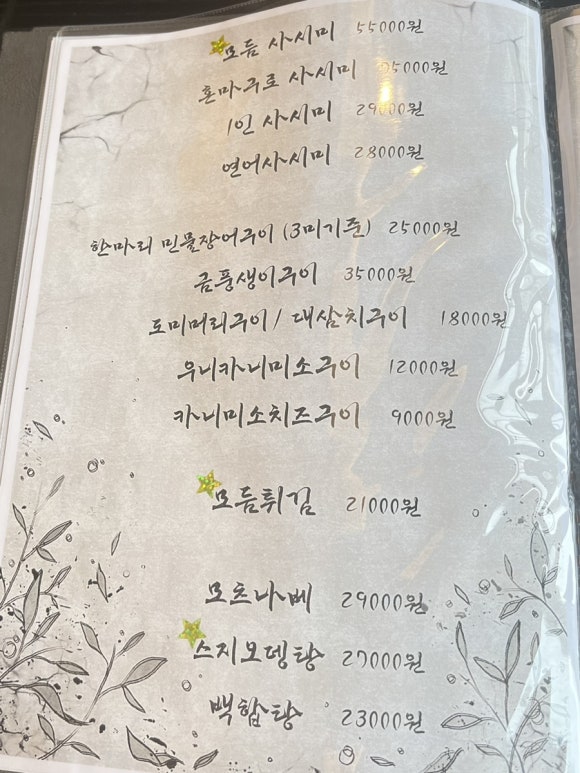 모듬 사시미 55000원
혼마구로 사시미 35000원
1인 사시미 29000원
연어사시미 28000원
한마리 민물장어구이 (3미기준) 25000원
금풍생이구이 35000원
도미머리구이 / 대삼치구이 18000원
우니카니미소구이 12000원
카니미소치즈구이 9000원
모듬튀김 21000원
모츠나베 29000원
스지오뎅탕 27000원
백합탕 23000원